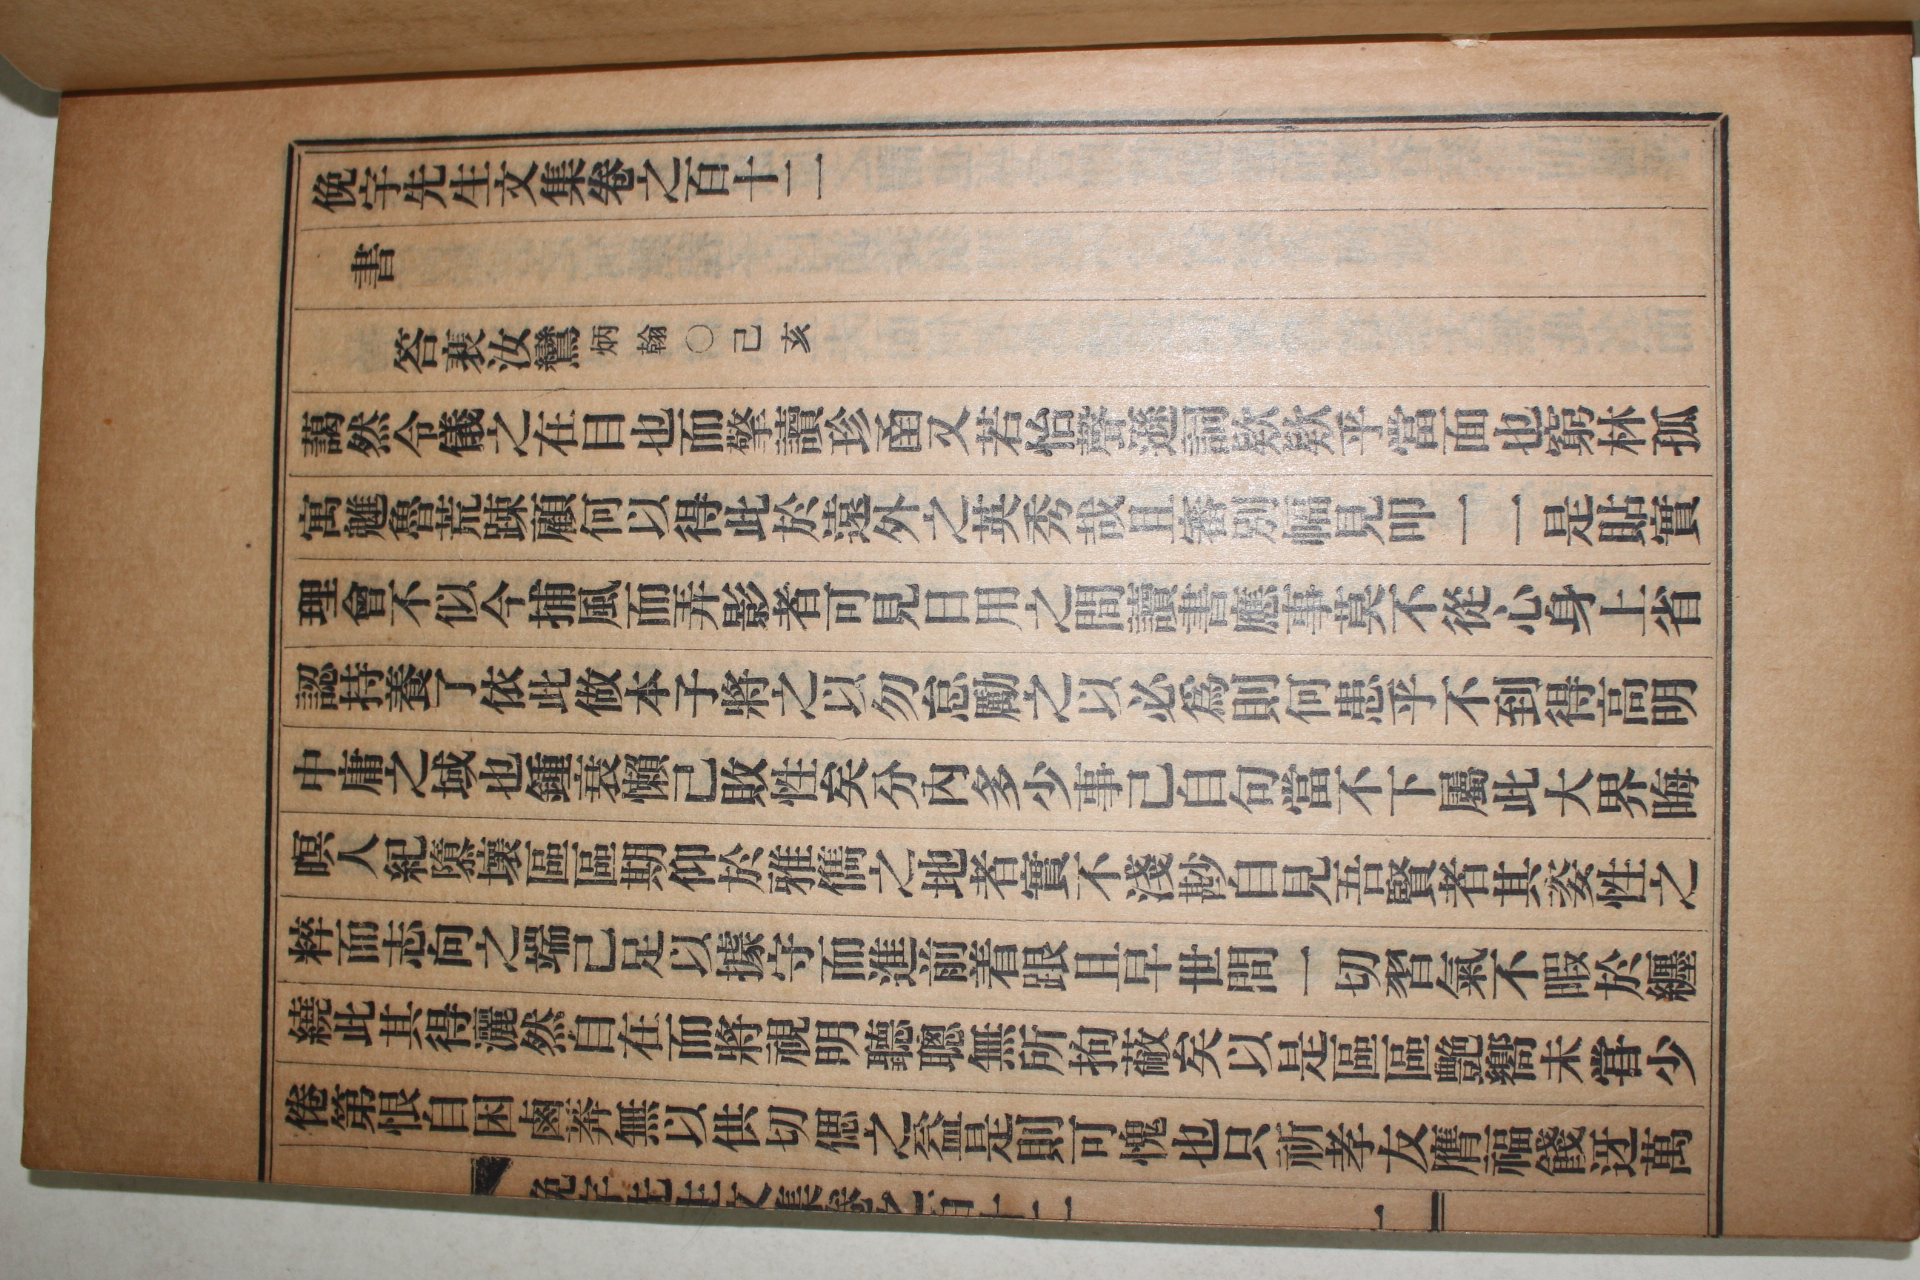 俛宇先生文集卷之百十二
書
答裴汝鸞炳翰○己亥
藹然令儀之在目也而擎讀珍函又若怡聲遜詞欵欵乎當面也窮林孤
寓魋魯荒踈顧何以得此於遠外之英秀哉且審別幅見叩一一是貼實
理會不似今捕風而弄影者可見日用之間讀書應事莫不從心身上省
認持養了依此做本子將之以勿怠勵之以必爲則何患乎不到得高明
中庸之域也鍾衰懶已敗性矣分內多少事已自句當不下屬此大界晦
暝人紀隳壞區區期仰於雅儁之地者實不淺尠自見吾賢者其姿性之
粹而志向之端已足以據守而進前着跟且早世間一切習氣不暇於纏
繞此其得灑然自在而將視明聽聰無所拘蔽矣以是區區艶嚮未嘗少
倦第恨自困鹵莽無以供切偲之益是則可愧也只祈孝友膺福餞迓萬
俛宇先生文集卷之百十二 一